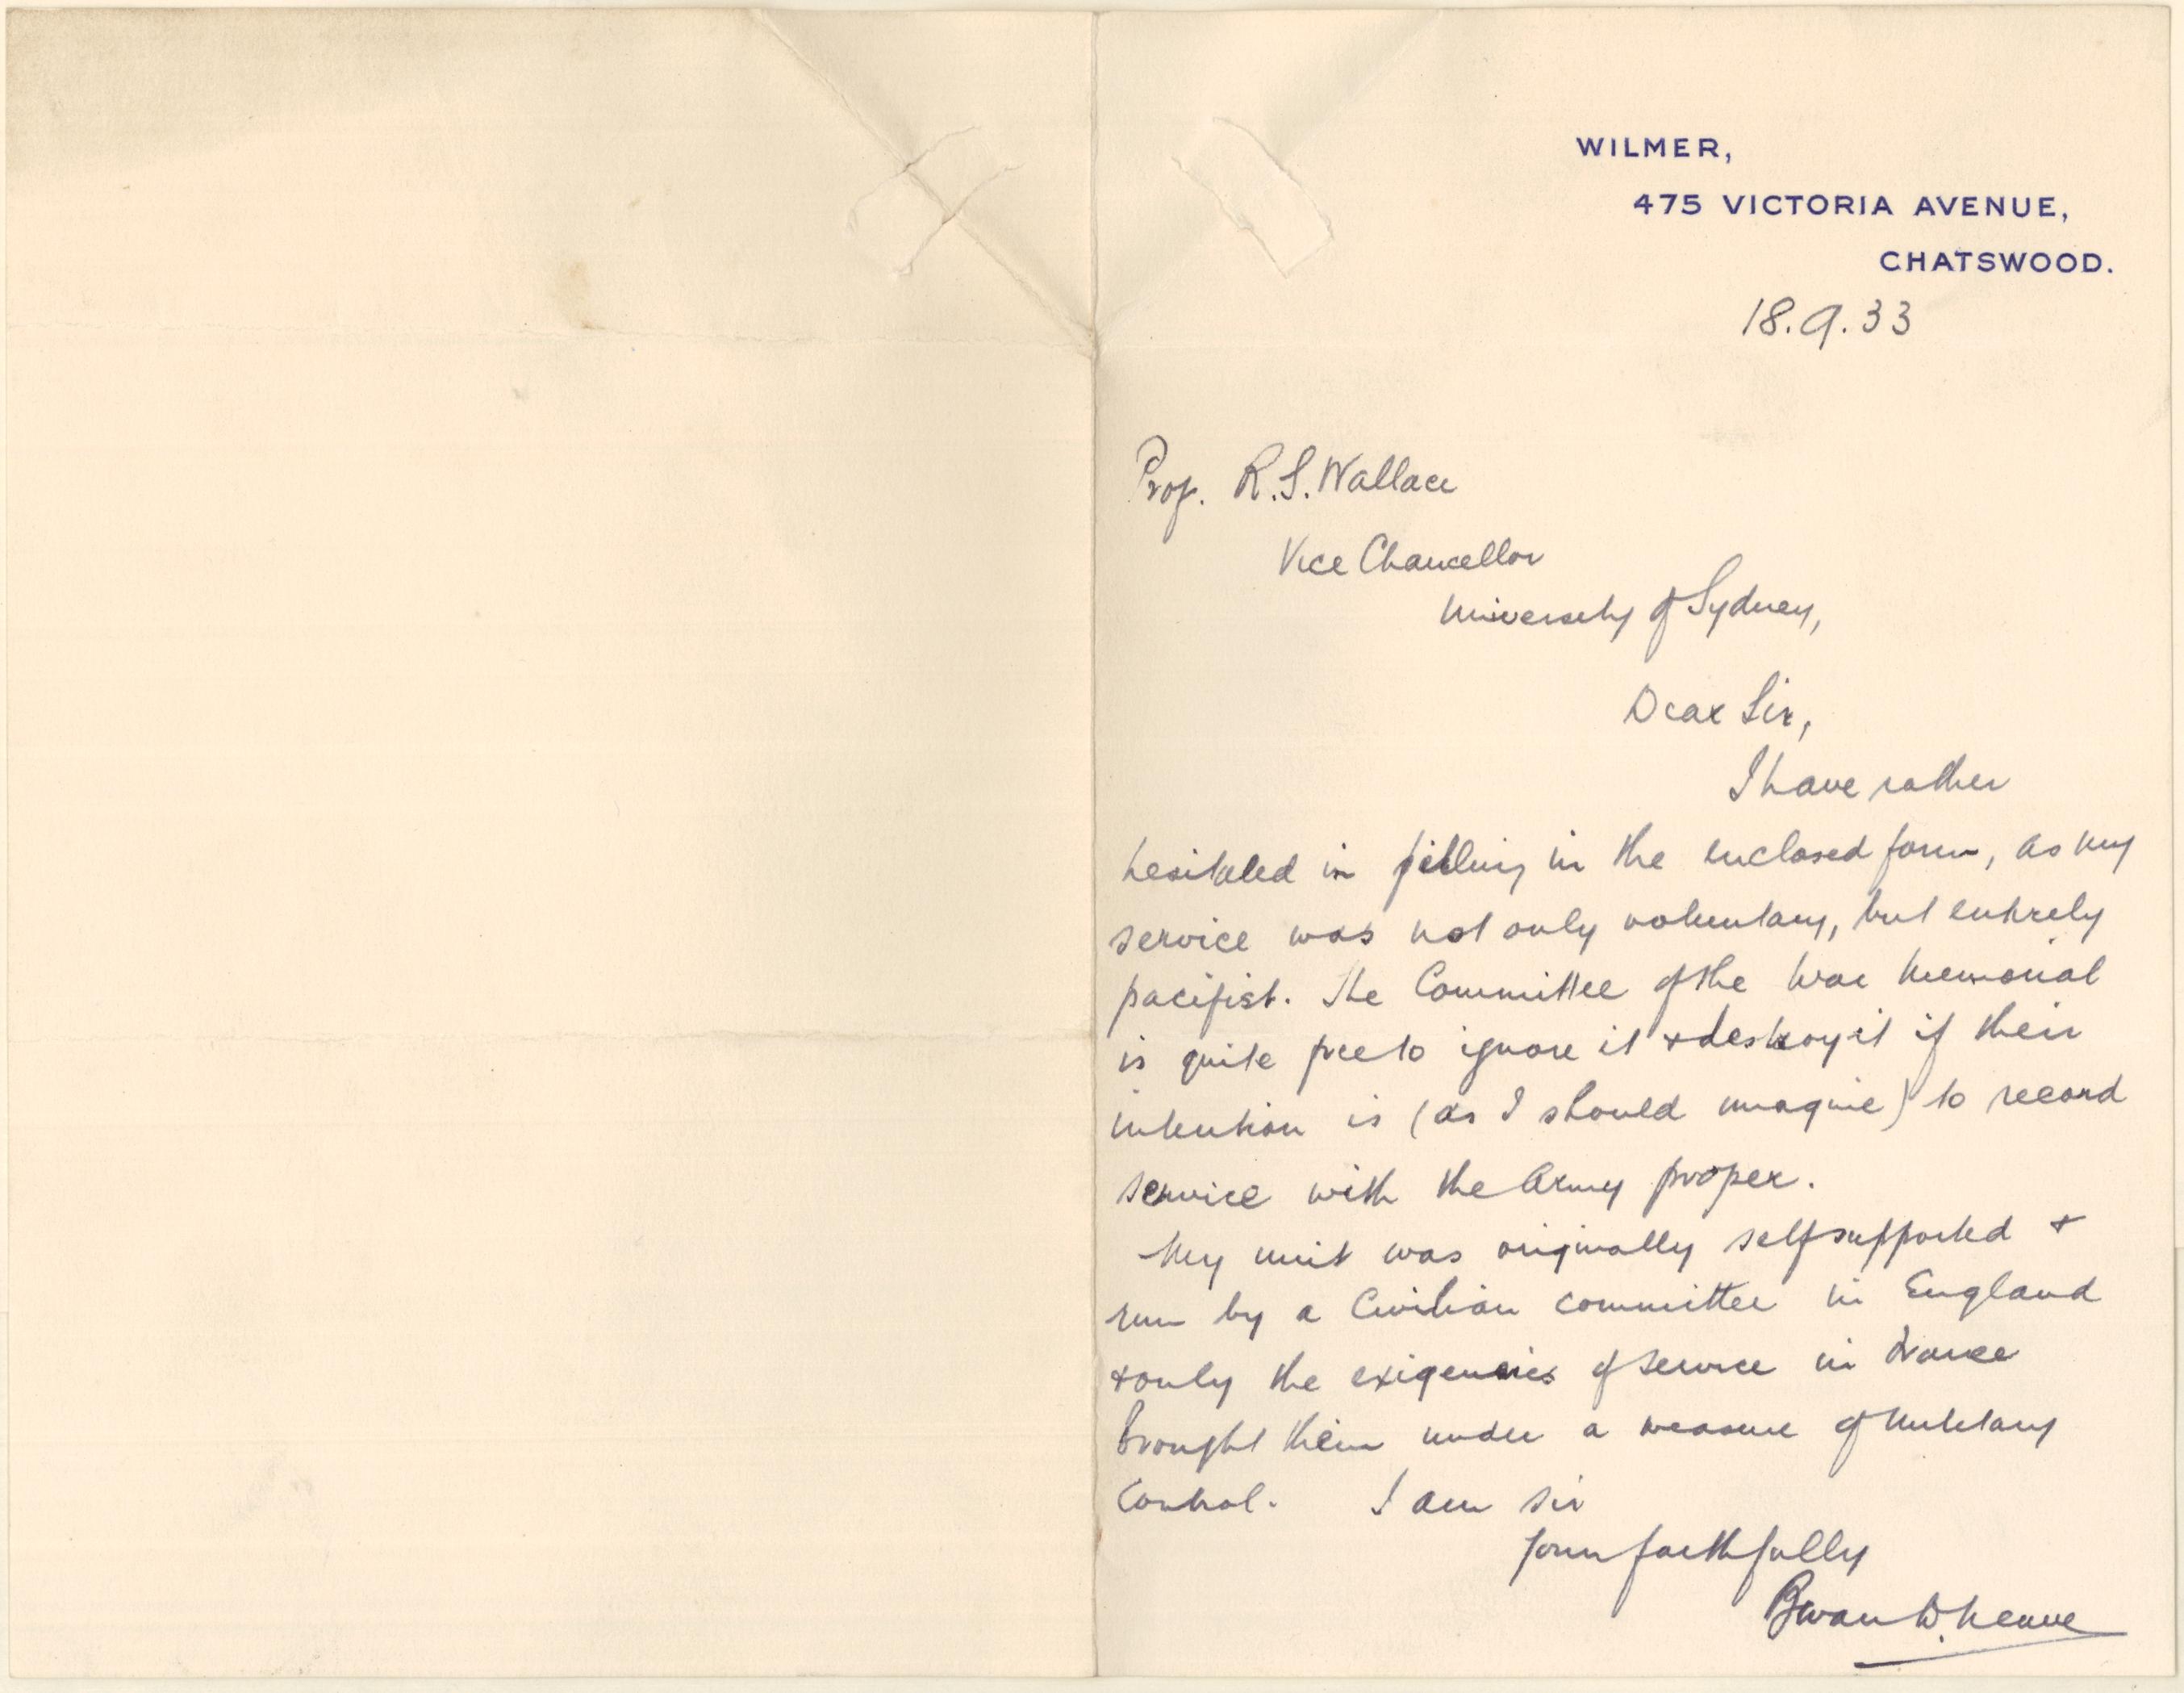 WILMER,
475 VICTORIA AVENUE,
CHATSWOOD.
18.9.33
Prof. R.S. Wallace
Vice Chancellor
University of Sydney,
Dear Sir,
I have rather
hesitated in filling in the enclosed form, as my
service was not only voluntary, but entirely
pacifist. The Committee of the War Memorial
is quite free to ignore it + destroy it if their
intention is (as I should imagine) to record
service with the Army proper.
My unit was originally selfsupported +
run by a Civilian committee in England
+ only the exigencies of service in France
brought them under a measure of Military
Control. I am sir
Yours faithfully
W.